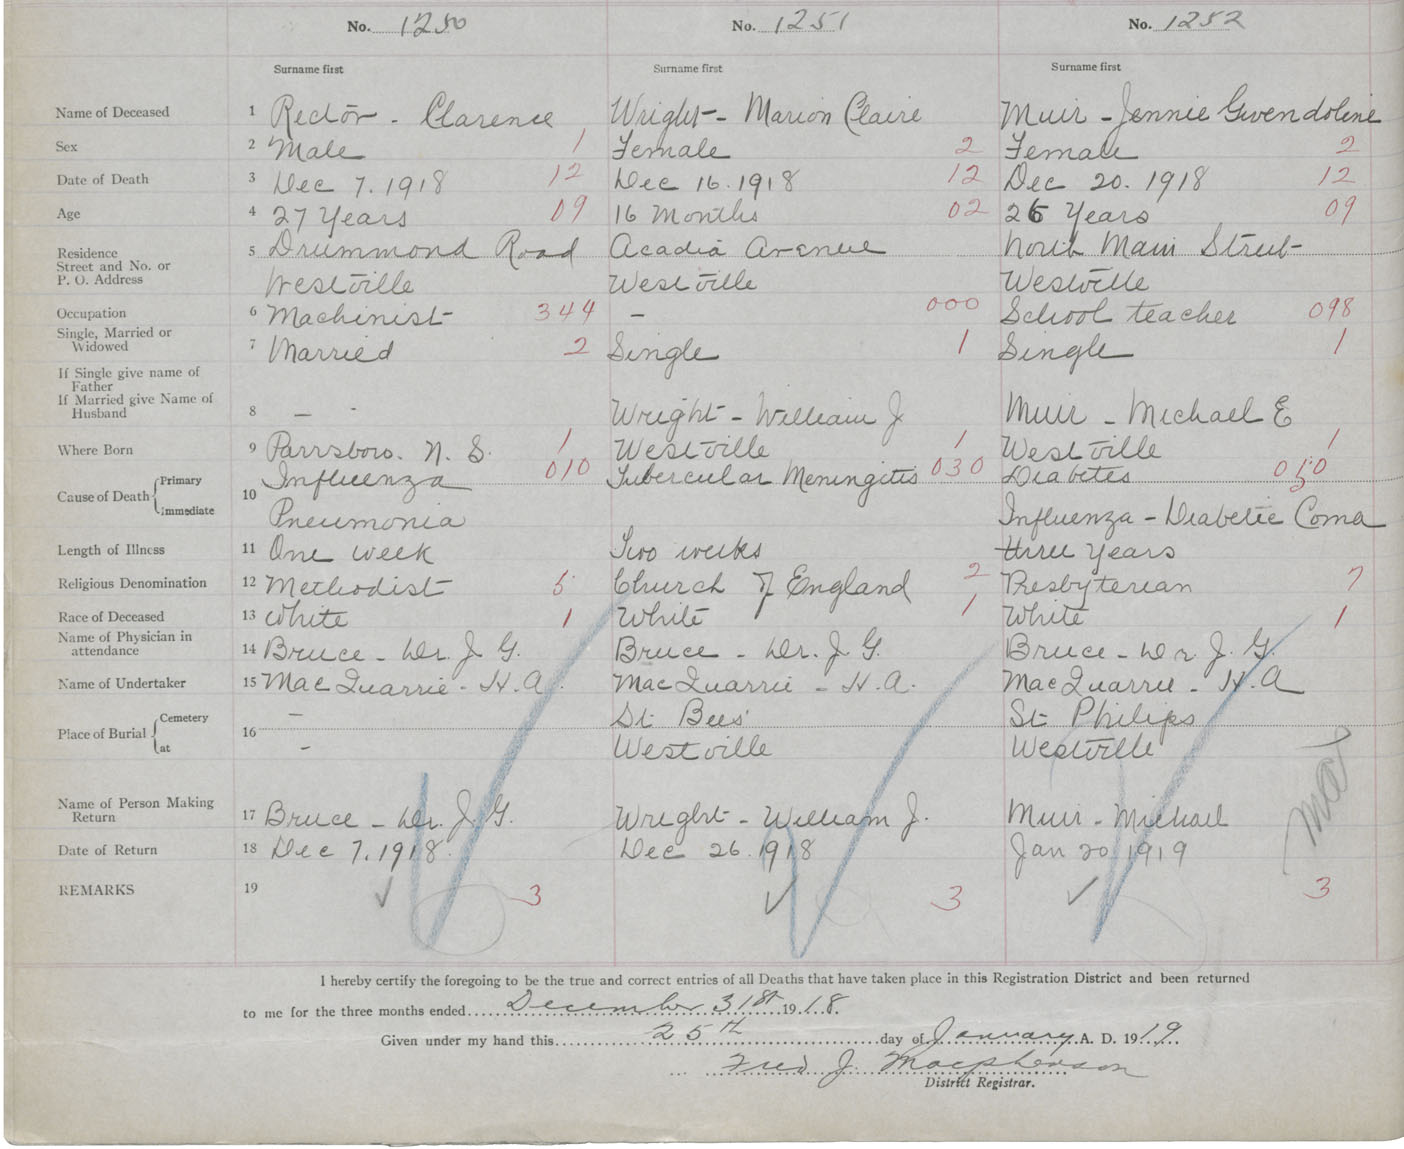 No. 1250 No. 1251 No. 1252
Surname first Surname first Surname first
Name of Deceased 1 Rector - Clarence Wright - Marion Claire Muir - Jennie Gwendoline
Sex 2 Male 1 Female 2 Female 2
Date of Death 3 Dec 7. 1918 12 Dec 16. 1918 12 Dec 20. 1918 12
Age 4 27 Years 09 16 Months 02 26 Years 09
Residence 5 Drummond Road Acadia Avenue North Main Street
Street and No. or
P. O. Address Westville Westville Westville
Occupation 6 Machinist 344 - 000 School teacher 098
Single, Married or
Widowed 7 Married 2 Single 1 Single 1
If Single give name of
Father
If Married give Name of
Husband 8 - - Wright - William J Muir - Michael E
Where Born 9 Parrsboro. N. S. 1 Westville 1 Westville 1
Cause of Death Primary Influenza 010 Tubercular Meningitis 030 Diabetes 050
10
Immediate Pneumonia Influenza - Diabetic Coma
Length of Illness 11 One week Two weeks three years
Religious Denomination 12 Methodist 5 Church of England 2 Presbyterian 7
Race of Deceased 13 White 1 White 1 White 1
Name of Physician in
attendance 14 Bruce - Dr. J. G. Bruce - Dr. J. G. Bruce - Dr J. G.
Name of Undertaker 15 MacQuarrie - H. A. MacQuarrie - H. A. MacQuarrie - H. A
Place of Burial Cemetery 16 - St. Bees' St Philips
at - Westville Westville
Name of Person Making
Return 17 Bruce - Dr. J. G. Wright - William J. Muir - Michael
Date of Return 18 Dec 7. 1918. Dec 26. 1918 Jan 20 1919
REMARKS 19 3 3 3
I hereby certify the foregoing to be the true and correct entries of all Deaths that have taken place in this Registration District and been returned
to me for the three months ended December 31st 1918.
Given under my hand this 25th day of January A. D. 1919.
Fred J. Macpherson
District Registrar.